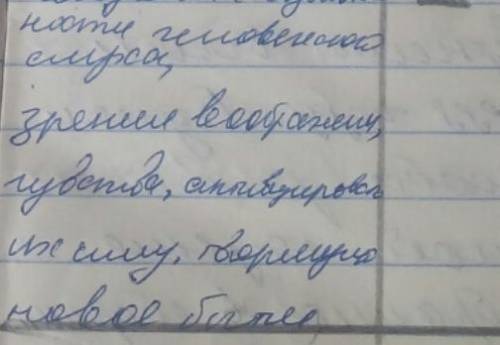 ности человеческого
слуха,
зрения воображения,
чувства, активизировал
их силу, творящую
новое бытие